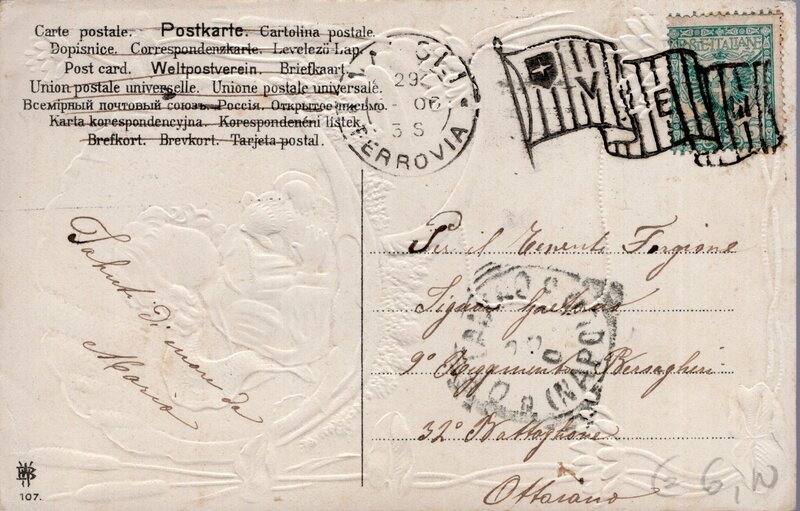 Carte postale. Postkarte. Cartolina postale.
Dopisnice. Correspondenzkarte. Levelező Lap.
Post card. Weltpostverein. Briefkaart.
Union postale universelle. Unione postale universale.
Всемірный почтовый союзъ. Россия. Открытое письмо.
Karta korespondencyjna. Korespondenční lístek.
Brefkort. Brevkort. Tarjeta postal.
29
06
3 S
FERROVIA
V E
POSTE ITALIANE
Per il Tenente Forgione
Signor Gaetano
9º Reggimento Bersaglieri
32º Battaglione
Ottaiano
Saluti di cuore da
Mario
(NAPOLI)
107.
6,N